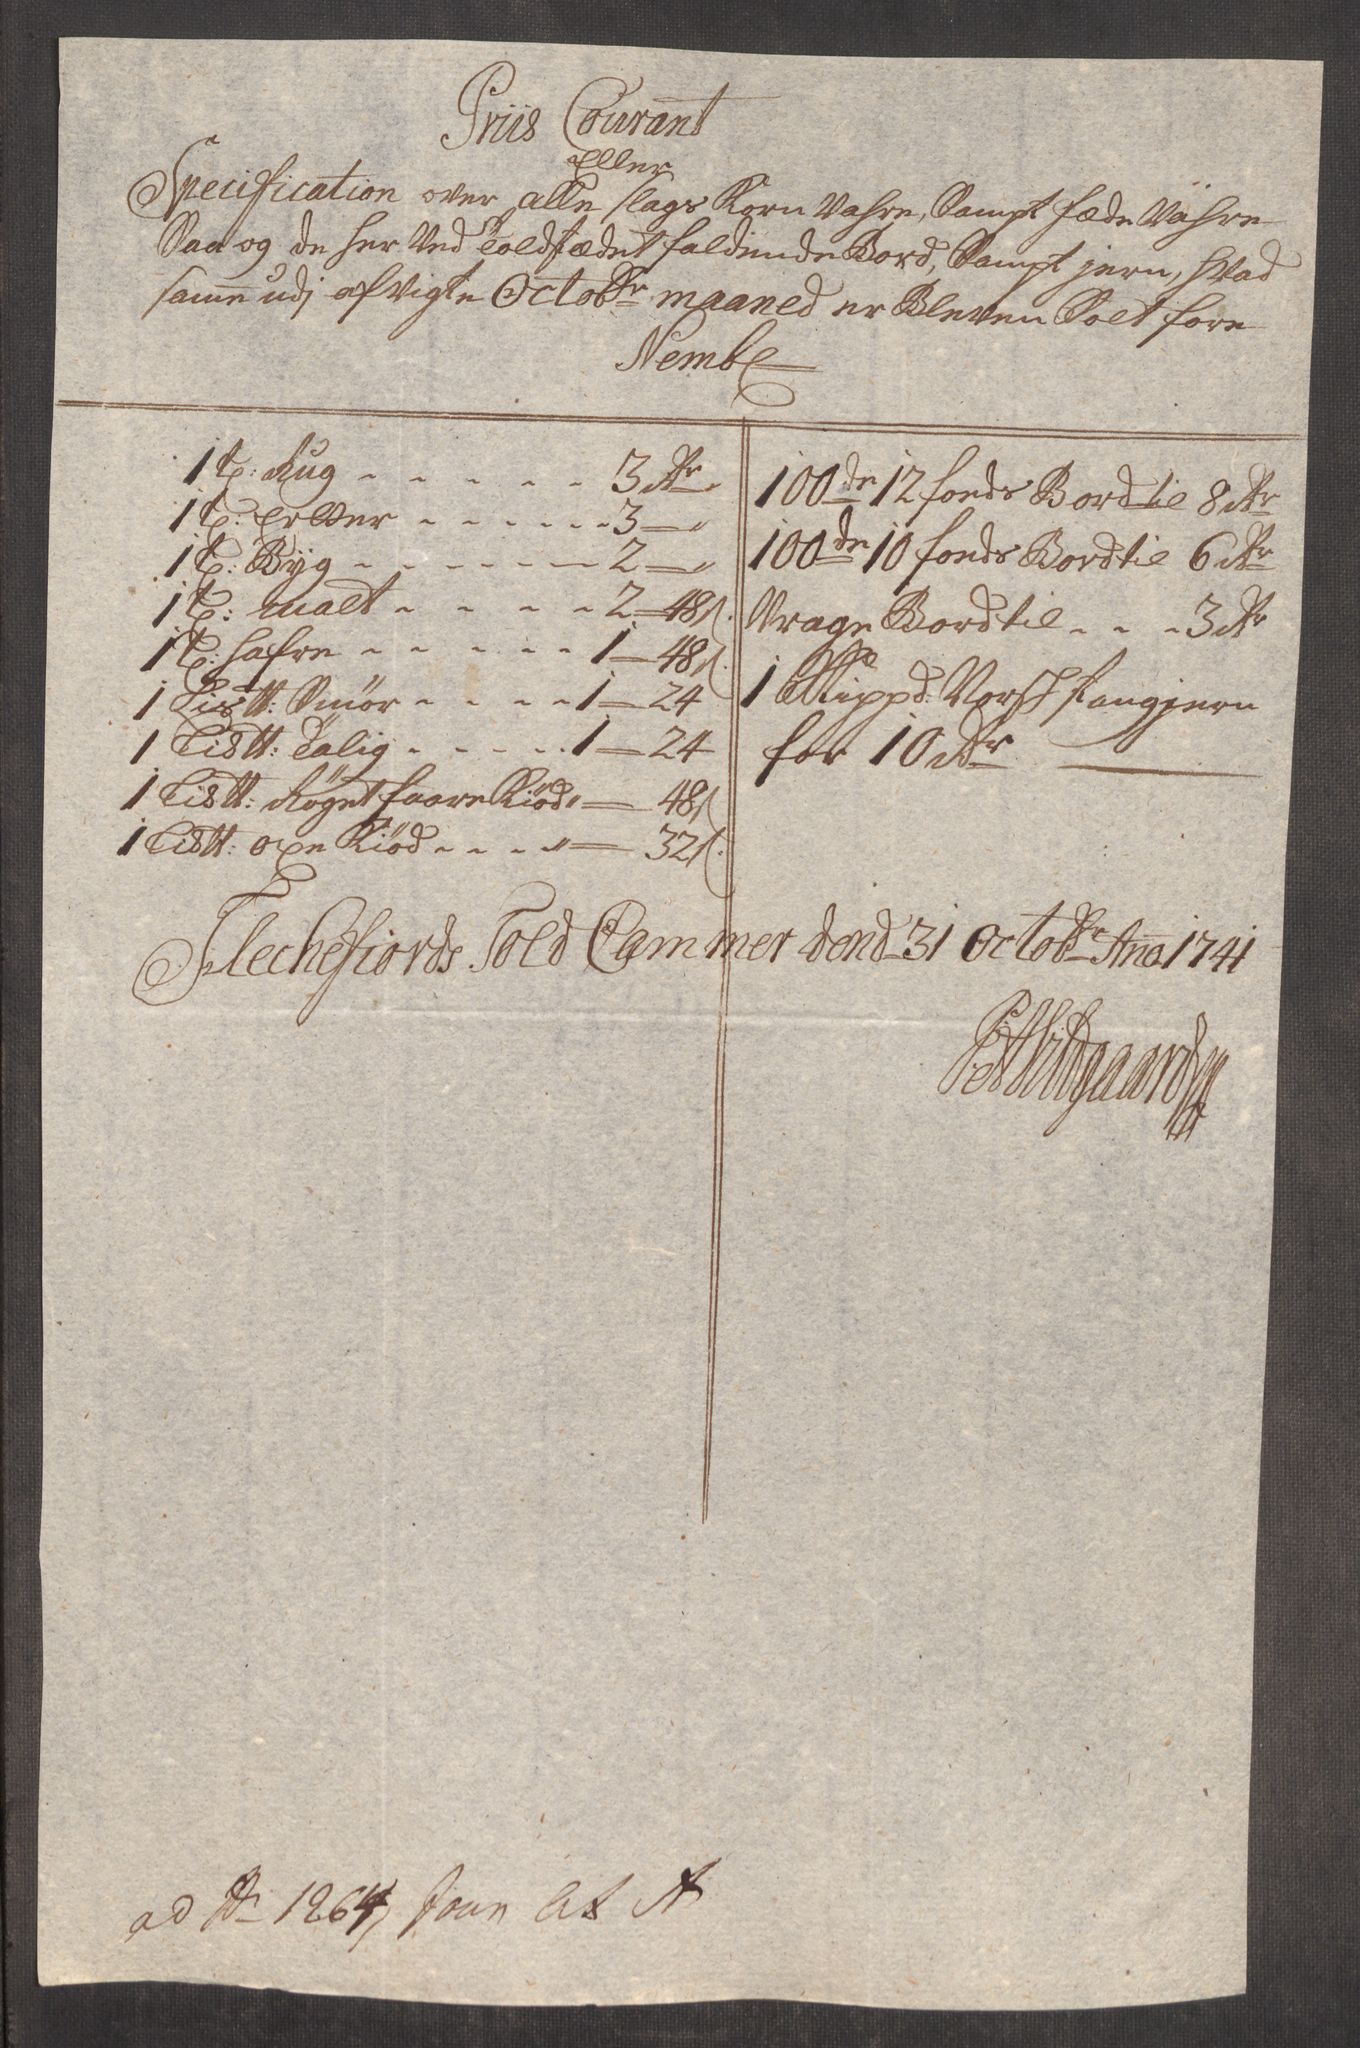 Priis Courant
Eller
Specification over alle slags Korn Vahre, Sampt fæde Vahre
Saa og de her Ved Toldstædet faldende Bord, Sampt jern, hvad
samme udj afvigte Octobr. maaned er Bleven Solt fore
Nembl.
1 t: Rug - - - - - 3 Rdr "
1 t: Erter - - - - - - 3 — "
1 t: Byg - - - - - - 2 — "
1 t: malt - - - - 2 — 48 s.
1 t: hafre - - - - - 1 — 48 s.
1 Lis tt: Smör - - - - 1 — 24
1 Lis tt: Talig - - - - - 1 — 24
1 Lis tt: Röget faare Kiöd " — 48 s
1 Lis tt: oxe Kiöd - - - " — 32 s.
100de 12 fods Bord til 8 Rdr
100de 10 fods Bord til 6 Rdr
Vrage Bord til - - - 3 Rdr
1 Skippd: Norsk stangjern
for 10 Rdr
Flechefiords Told Cammer dend 31 Octobr. Anno 1741
ad No 1264, Journ Lit A